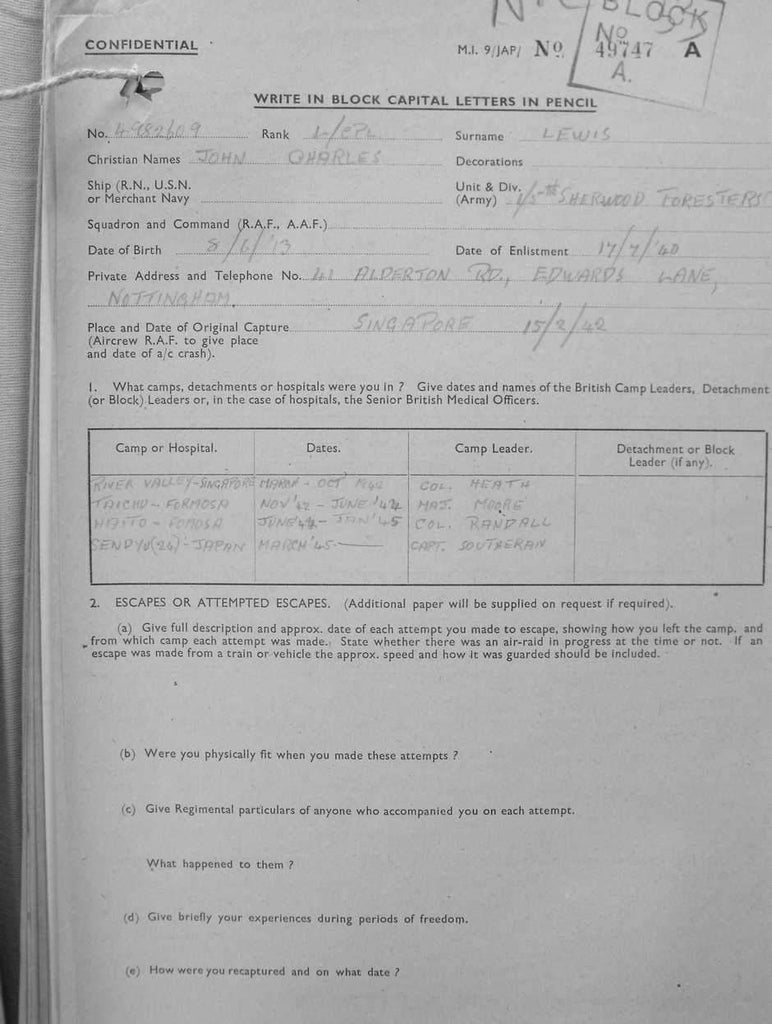 BLOCK
No
CONFIDENTIAL
M.I. 9/JAP/ No. 49747 A
A.
WRITE IN BLOCK CAPITAL LETTERS IN PENCIL
No. 4982609 Rank L/CPL Surname LEWIS
Christian Names JOHN CHARLES Decorations
Ship (R.N., U.S.N. or Merchant Navy
Unit & Div. (Army) 1/5th SHERWOOD FORESTERS
Squadron and Command (R.A.F., A.A.F.)
Date of Birth 8/6/'13 Date of Enlistment 17/7/'40
Private Address and Telephone No. 41 ALDERTON RD., EDWARDS LANE,
NOTTINGHAM.
Place and Date of Original Capture SINGAPORE 15/2/42
(Aircrew R.A.F. to give place
and date of a/c crash).
1. What camps, detachments or hospitals were you in ? Give dates and names of the British Camp Leaders, Detachment
(or Block) Leaders or, in the case of hospitals, the Senior British Medical Officers.
Camp or Hospital. Dates. Camp Leader. Detachment or Block
Leader (if any).
RIVER VALLEY-SINGAPORE MARCH - OCT 1942 COL. HEATH
TAICHU - FORMOSA NOV '42 - JUNE '44 MAJ. MOORE
HAITO - FOMOSA JUNE '44 - JAN '45 COL. RANDALL
SENDYU(26) - JAPAN MARCH '45 - CAPT.
2. ESCAPES OR ATTEMPTED ESCAPES. (Additional paper will be supplied on request if required).
(a) Give full description and approx. date of each attempt you made to escape, showing how you left the camp. and
from which camp each attempt was made. State whether there was an air-raid in progress at the time or not. If an
escape was made from a train or vehicle the approx. speed and how it was guarded should be included.
(b) Were you physically fit when you made these attempts ?
(c) Give Regimental particulars of anyone who accompanied you on each attempt.
What happened to them ?
(d) Give briefly your experiences during periods of freedom.
(e) How were you recaptured and on what date ?